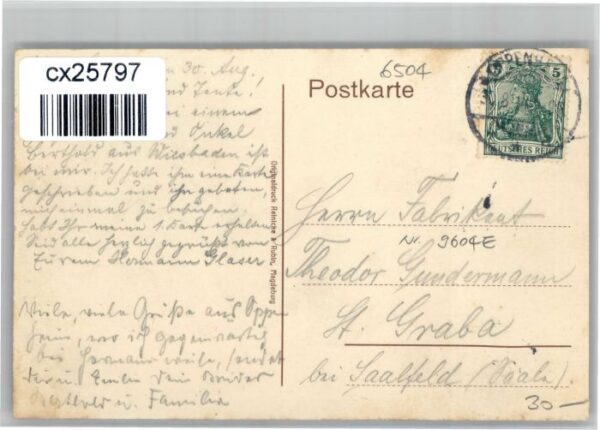 cx25797
n 30. Aug.
und Tante!
bei einem
Onkel
Berthold aus Wiesbaden ist
bei mir. Ich hatte ihm eine Karte
geschrieben und ihn gebeten,
mich einmal zu besuchen.
Habt Ihr meine 1. Kart erhalten
Seid alle herzlich gegrüßt von
Eurem Hermann Glaser
Viele, viele Grüße aus Oppen
heim, wo ich gegenwärtig
bei Hermann weile, sendet
dein Bruder
Berthold u. Familie
Originaldruck Reinicke & Rubin, Magdeburg
6504
Postkarte
5
DEUTSCHES REICH
Herrn Fabrikant
Nr. 9604E
Theodor Gundermann
St. Graba
bei Saalfeld (Saale)
30-